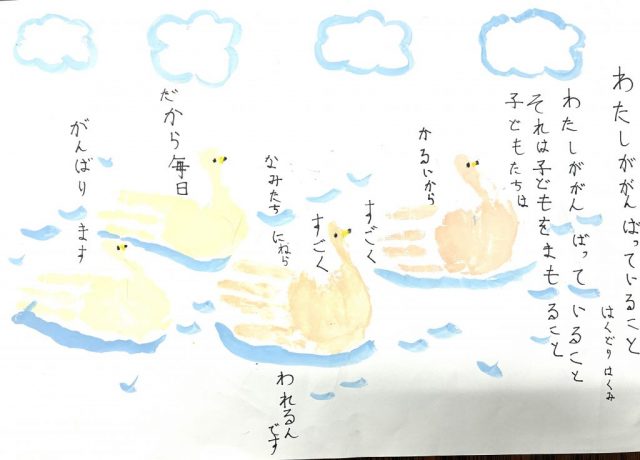 わたしががんばっていること
はくどりはくみ
わたしががんばっていること
それは子どもをまもること
子どもたちは
かるいから
すごく
すごく
なみたちにねら
われるんです
だから毎日
がんばります